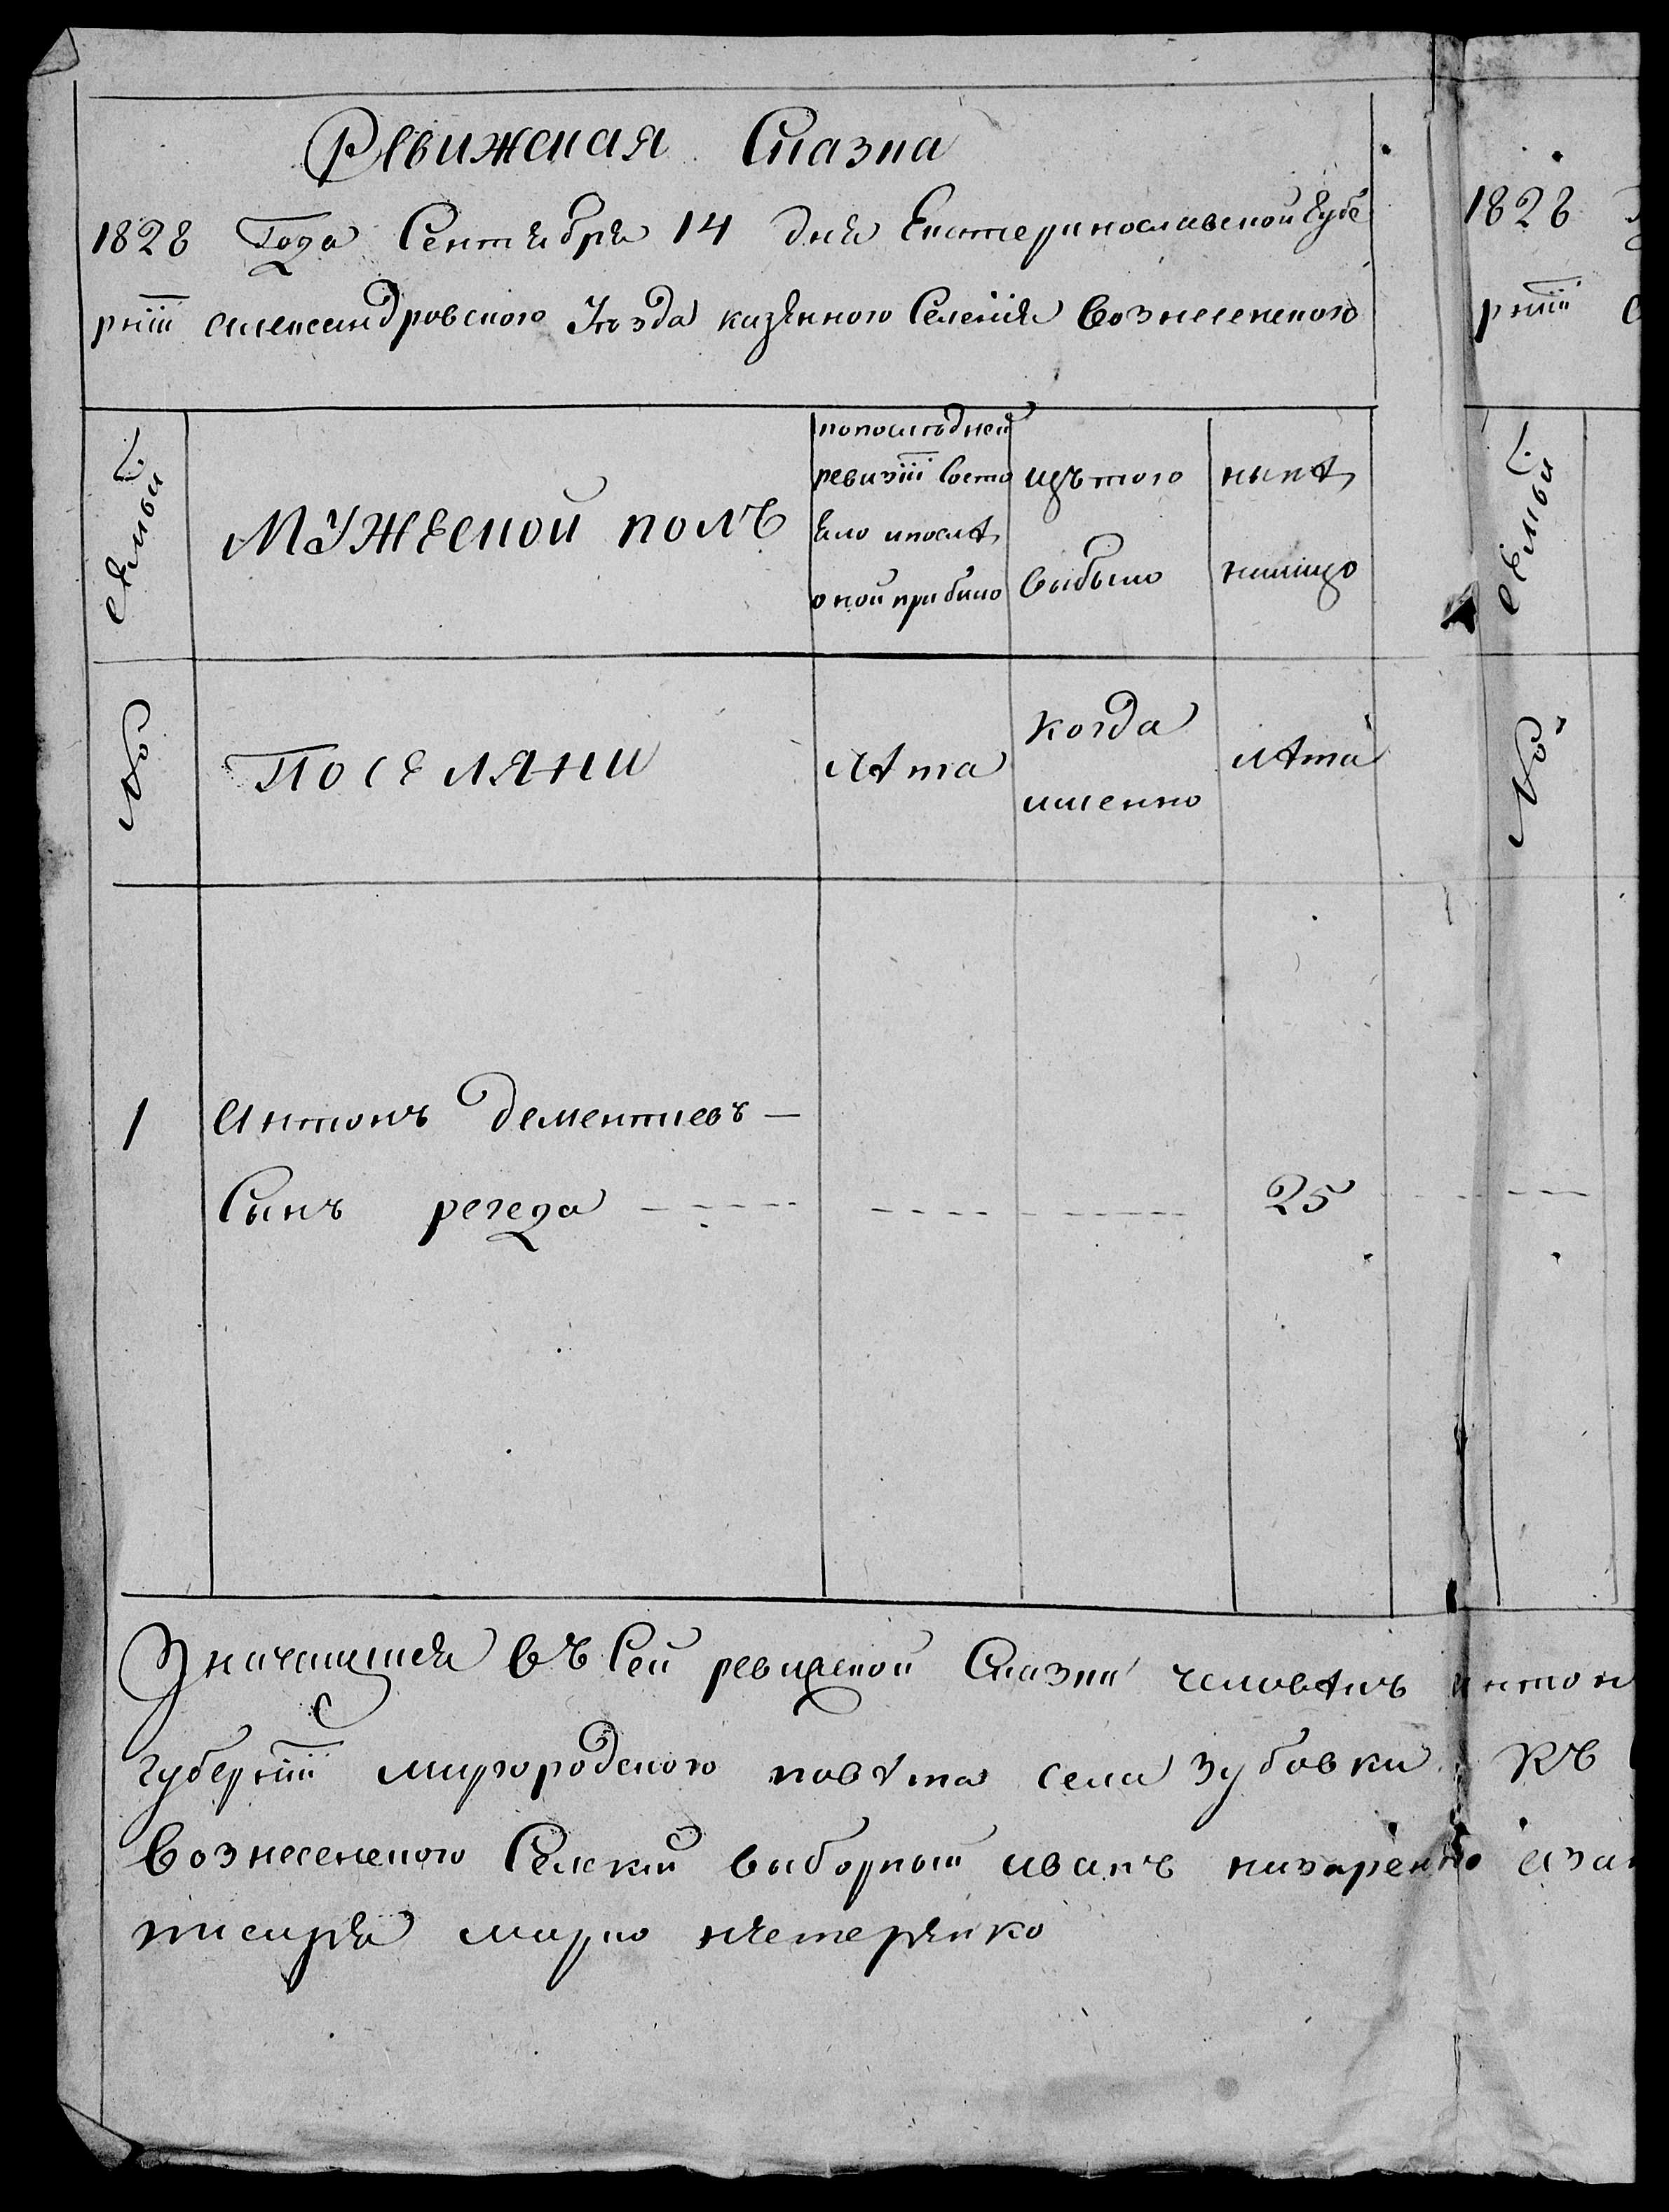 Ревижская Сказка
1828 Года Сентебря 14 дня Екатеринославской Губе
рніи александровского Уезда казенного Селенія Вознесенского
семьи
Мужеской полъ
попоследней
ревизіи Состо
яло ипосле
оной прибыло
изътого
выбыло
ныне
налицо
№
Поселяни
лета
когда
именно
лета
1
Антонъ дементиевъ —
Сынъ регеда
25
Значащейся въ Сей ревижской Сказки человекъ антон
губерніи миргородского повета села Зубовки Къ
Вознесенского Селский выборный иванъ назаренко азан
писаря марко нестеренко
1828
рніи
семьи
№